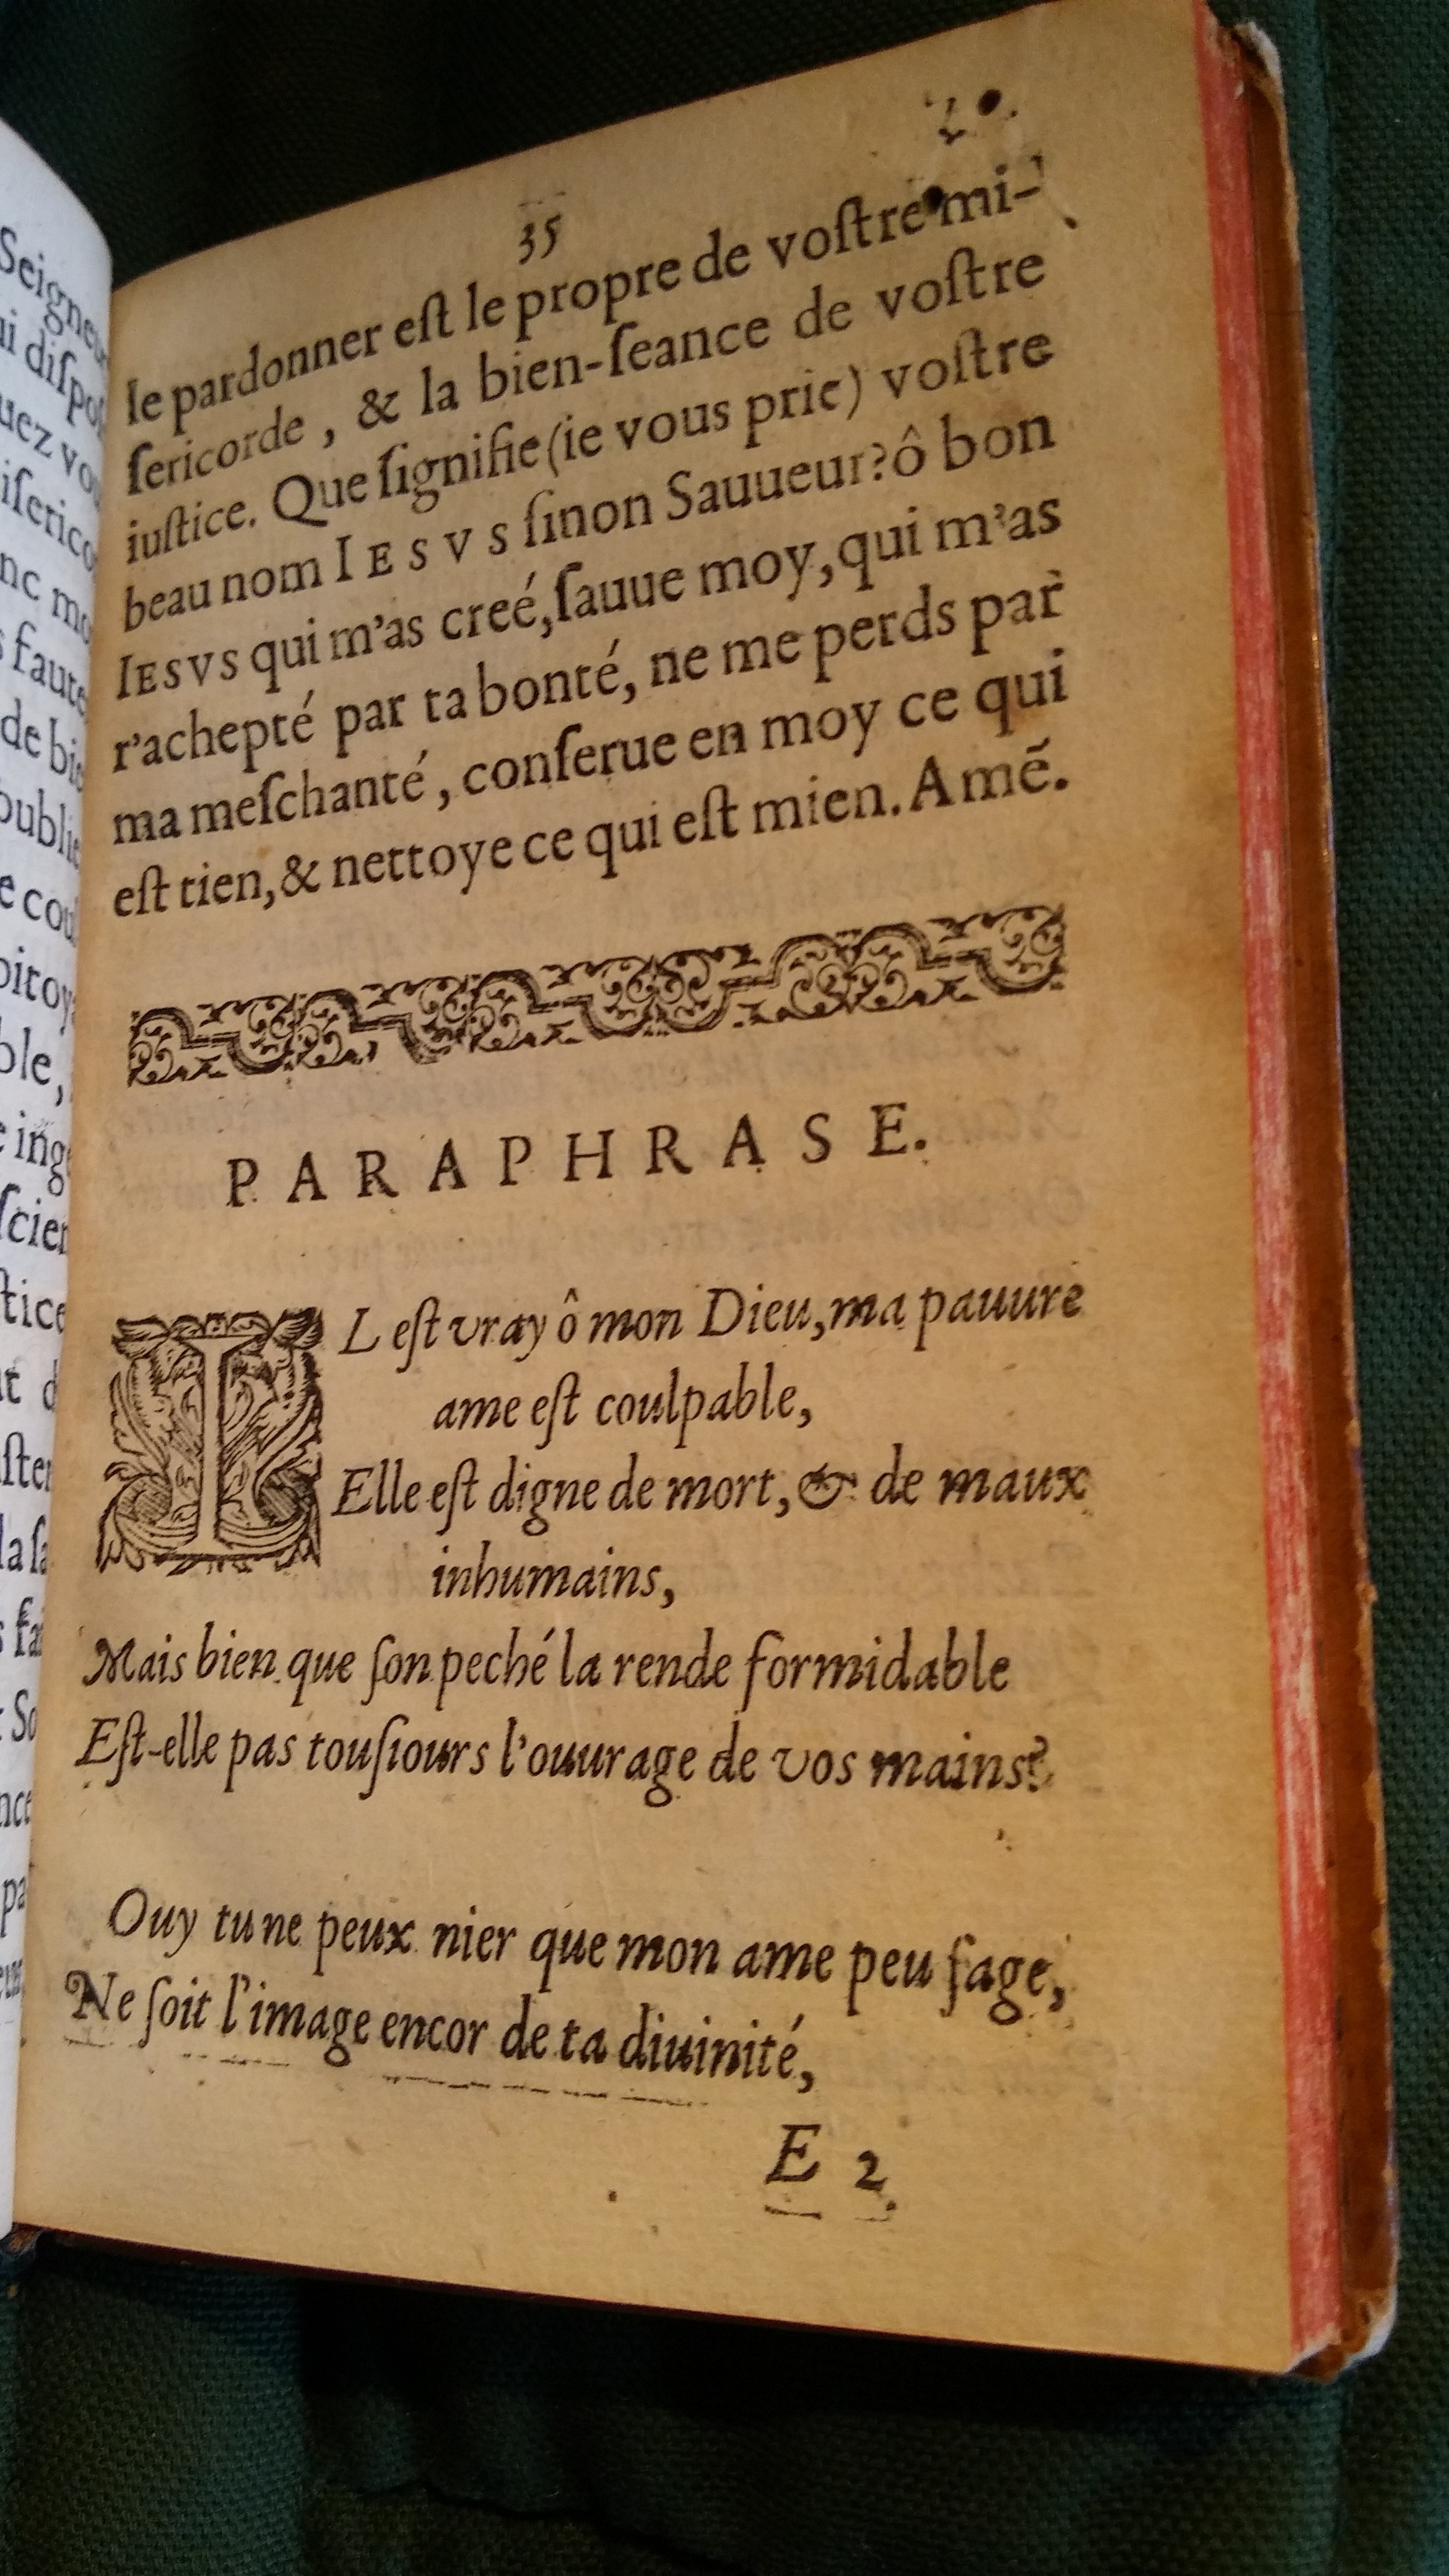 35
le pardonner eſt le propre de voſtre mi-
ſericorde, & la bien-ſeance de voſtre
iuſtice. Que ſignifie (ie vous prie) voſtre
beau nom IESVS ſinon Sauueur? ô bon
IESVS qui m'as creé, ſauue moy, qui m'as
r'achepté par ta bonté, ne me perds par
ma meſchanté, conſerue en moy ce qui
eſt tien, & nettoye ce qui eſt mien. Amẽ.
PARAPHRASE.
IL eſt vray ô mon Dieu, ma pauure
ame eſt coulpable,
Elle eſt digne de mort, & de maux
inhumains,
Mais bien que ſon peché la rende formidable
Eſt-elle pas touſiours l'ouurage de vos mains?
Ouy tu ne peux nier que mon ame peu ſage,
Ne ſoit l'image encor de ta diuinité,
E 2